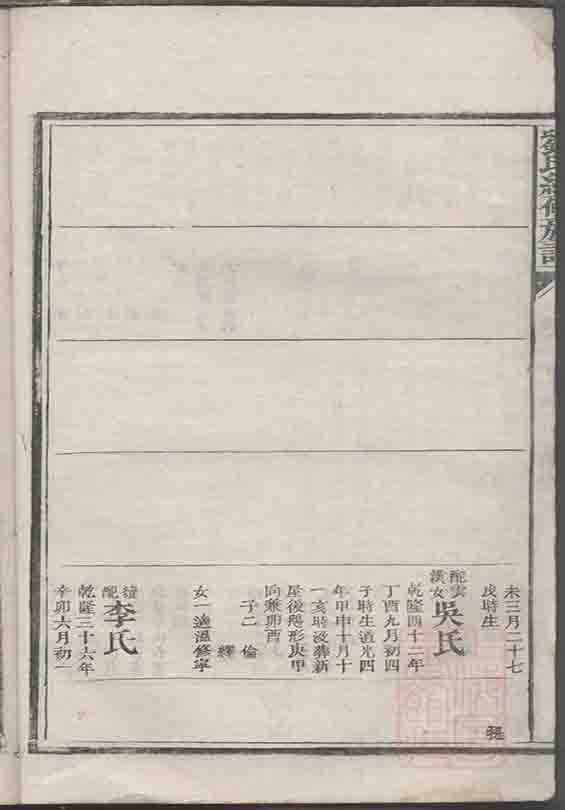 氏續修族譜
未三月二十七
戌時生
配雲
漢女
吳氏
乾隆四十二年
丁酉九月初四
子時生道光四
年甲申十月十
一亥時沒葬新
屋後形庚甲
向兼卯酉
子二 倫
繹
女一適溫修寧
續
配
李氏
乾隆三十六年
辛卯六月初一